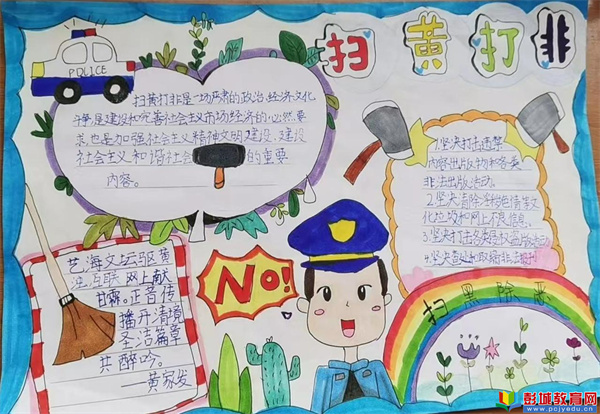 扫黄打非
POLICE
扫黄打非是一场严肃的政治、经济文化
斗争是建设和完善社会主义市场经济的必然要
求,也是加强社会主义精神文明建设、建设
社会主义和谐社会 的重要
内容。
1.坚决打击违禁
内容出版物和各类
非法出版活动。
2.坚决清除淫秽色情等文
化垃圾和网上不良信息。
3.坚决打击各类侵权盗版
4.坚决查处和取缔非法
NO!
艺海文坛驱黄
互联网上献
甘霖。正音传
播开清境
圣洁篇章
共醉吟。
——黄家发
扫黑除恶
彭城教育网
www.pcjyedu.cn